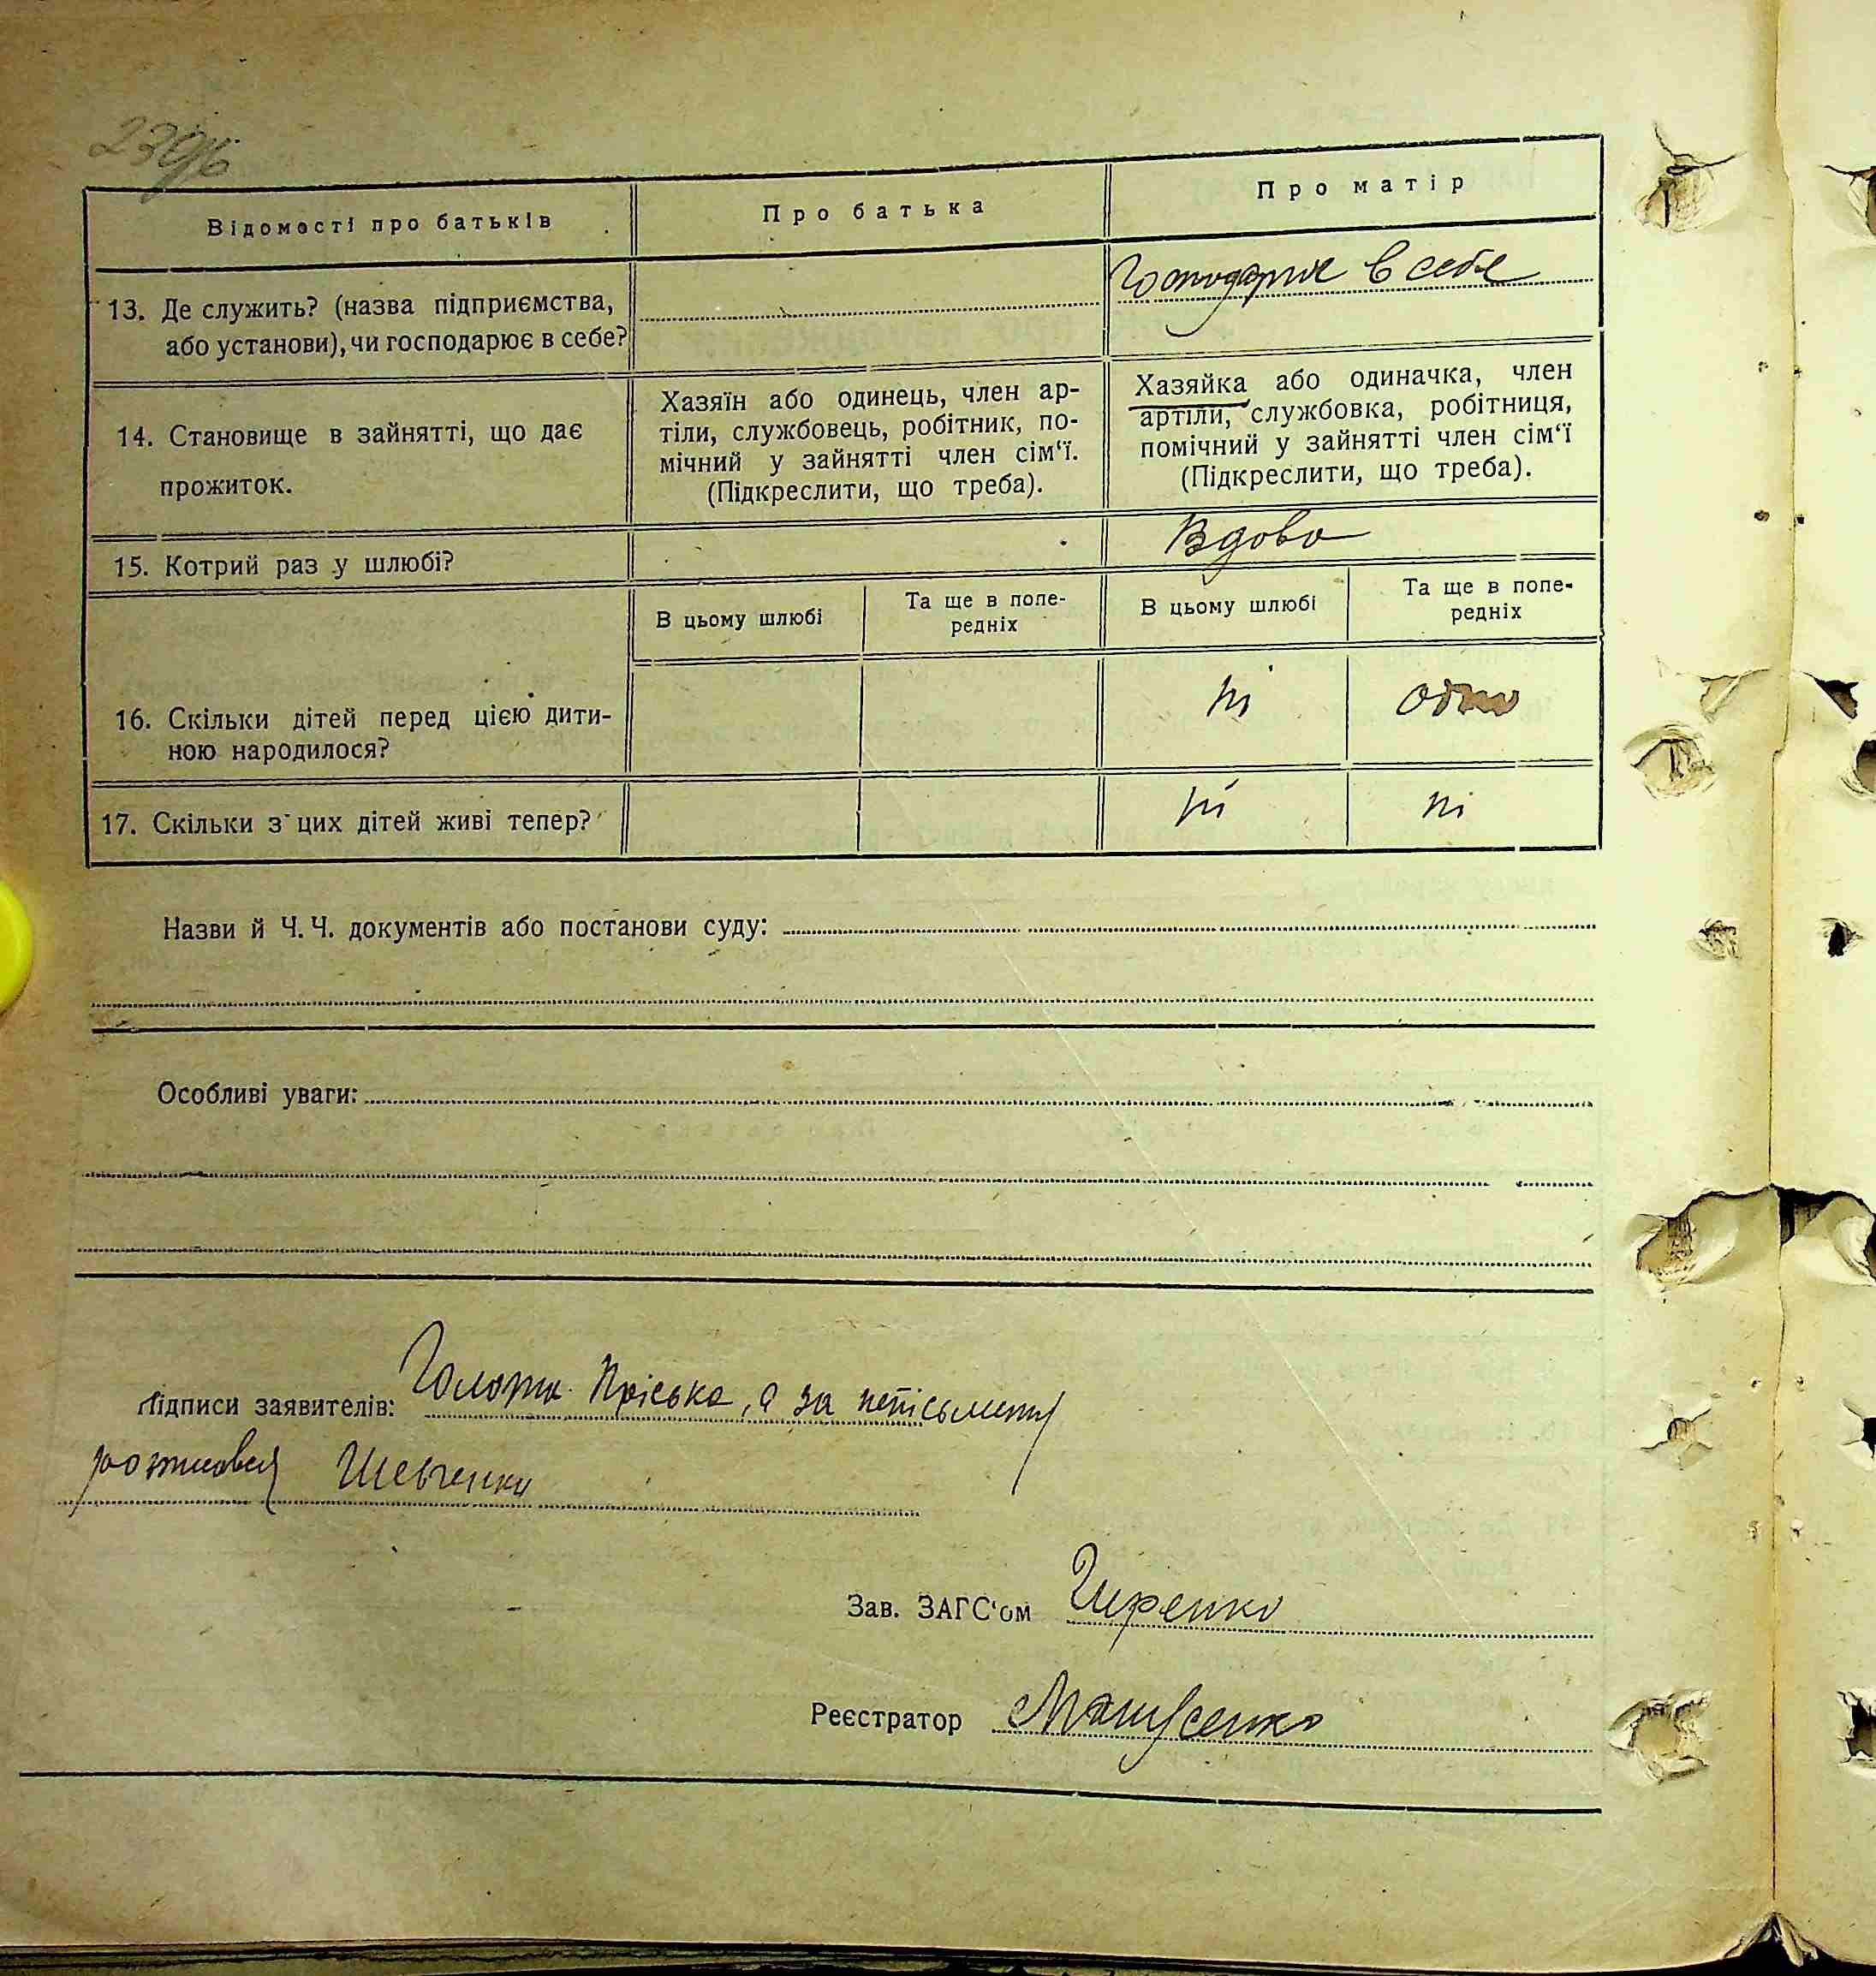 Відомості про батьків
Про батька
Про матір
13. Де служить? (назва підприємства,
або установи), чи господарює в себе?
Господарює в себе
14. Становище в зайнятті, що дає
прожиток.
Хазяїн або одинець, член ар-
тіли, службовець, робітник, по-
мічний у зайнятті член сім‘ї.
(Підкреслити, що треба).
Хазяйка або одиначка, член
артіли, службовка, робітниця,
помічний у зайнятті член сім‘ї
(Підкреслити, що треба).
15. Котрий раз у шлюбі?
Вдова
В цьому шлюбі
Та ще в попе-
редніх
В цьому шлюбі
Та ще в попе-
редніх
16. Скільки дітей перед цією дити-
ною народилося?
ні
одно
17. Скільки з цих дітей живі тепер?
ні
ні
Назви й Ч. Ч. документів або постанови суду:
Особливі уваги:
Підписи заявителів: Пріська, а за непісьмену
розписався Шевченко
Зав. ЗАГС‘ом
Реєстратор